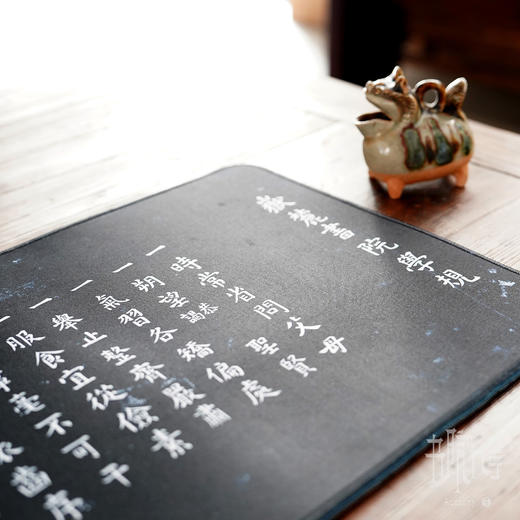 嶽麓書院學規
一時常省問父母
一朔望恭謁聖賢
一氣習各矯偏處
一舉止整齊嚴肅
一服食宜從儉素
事毫不可干
依齒序